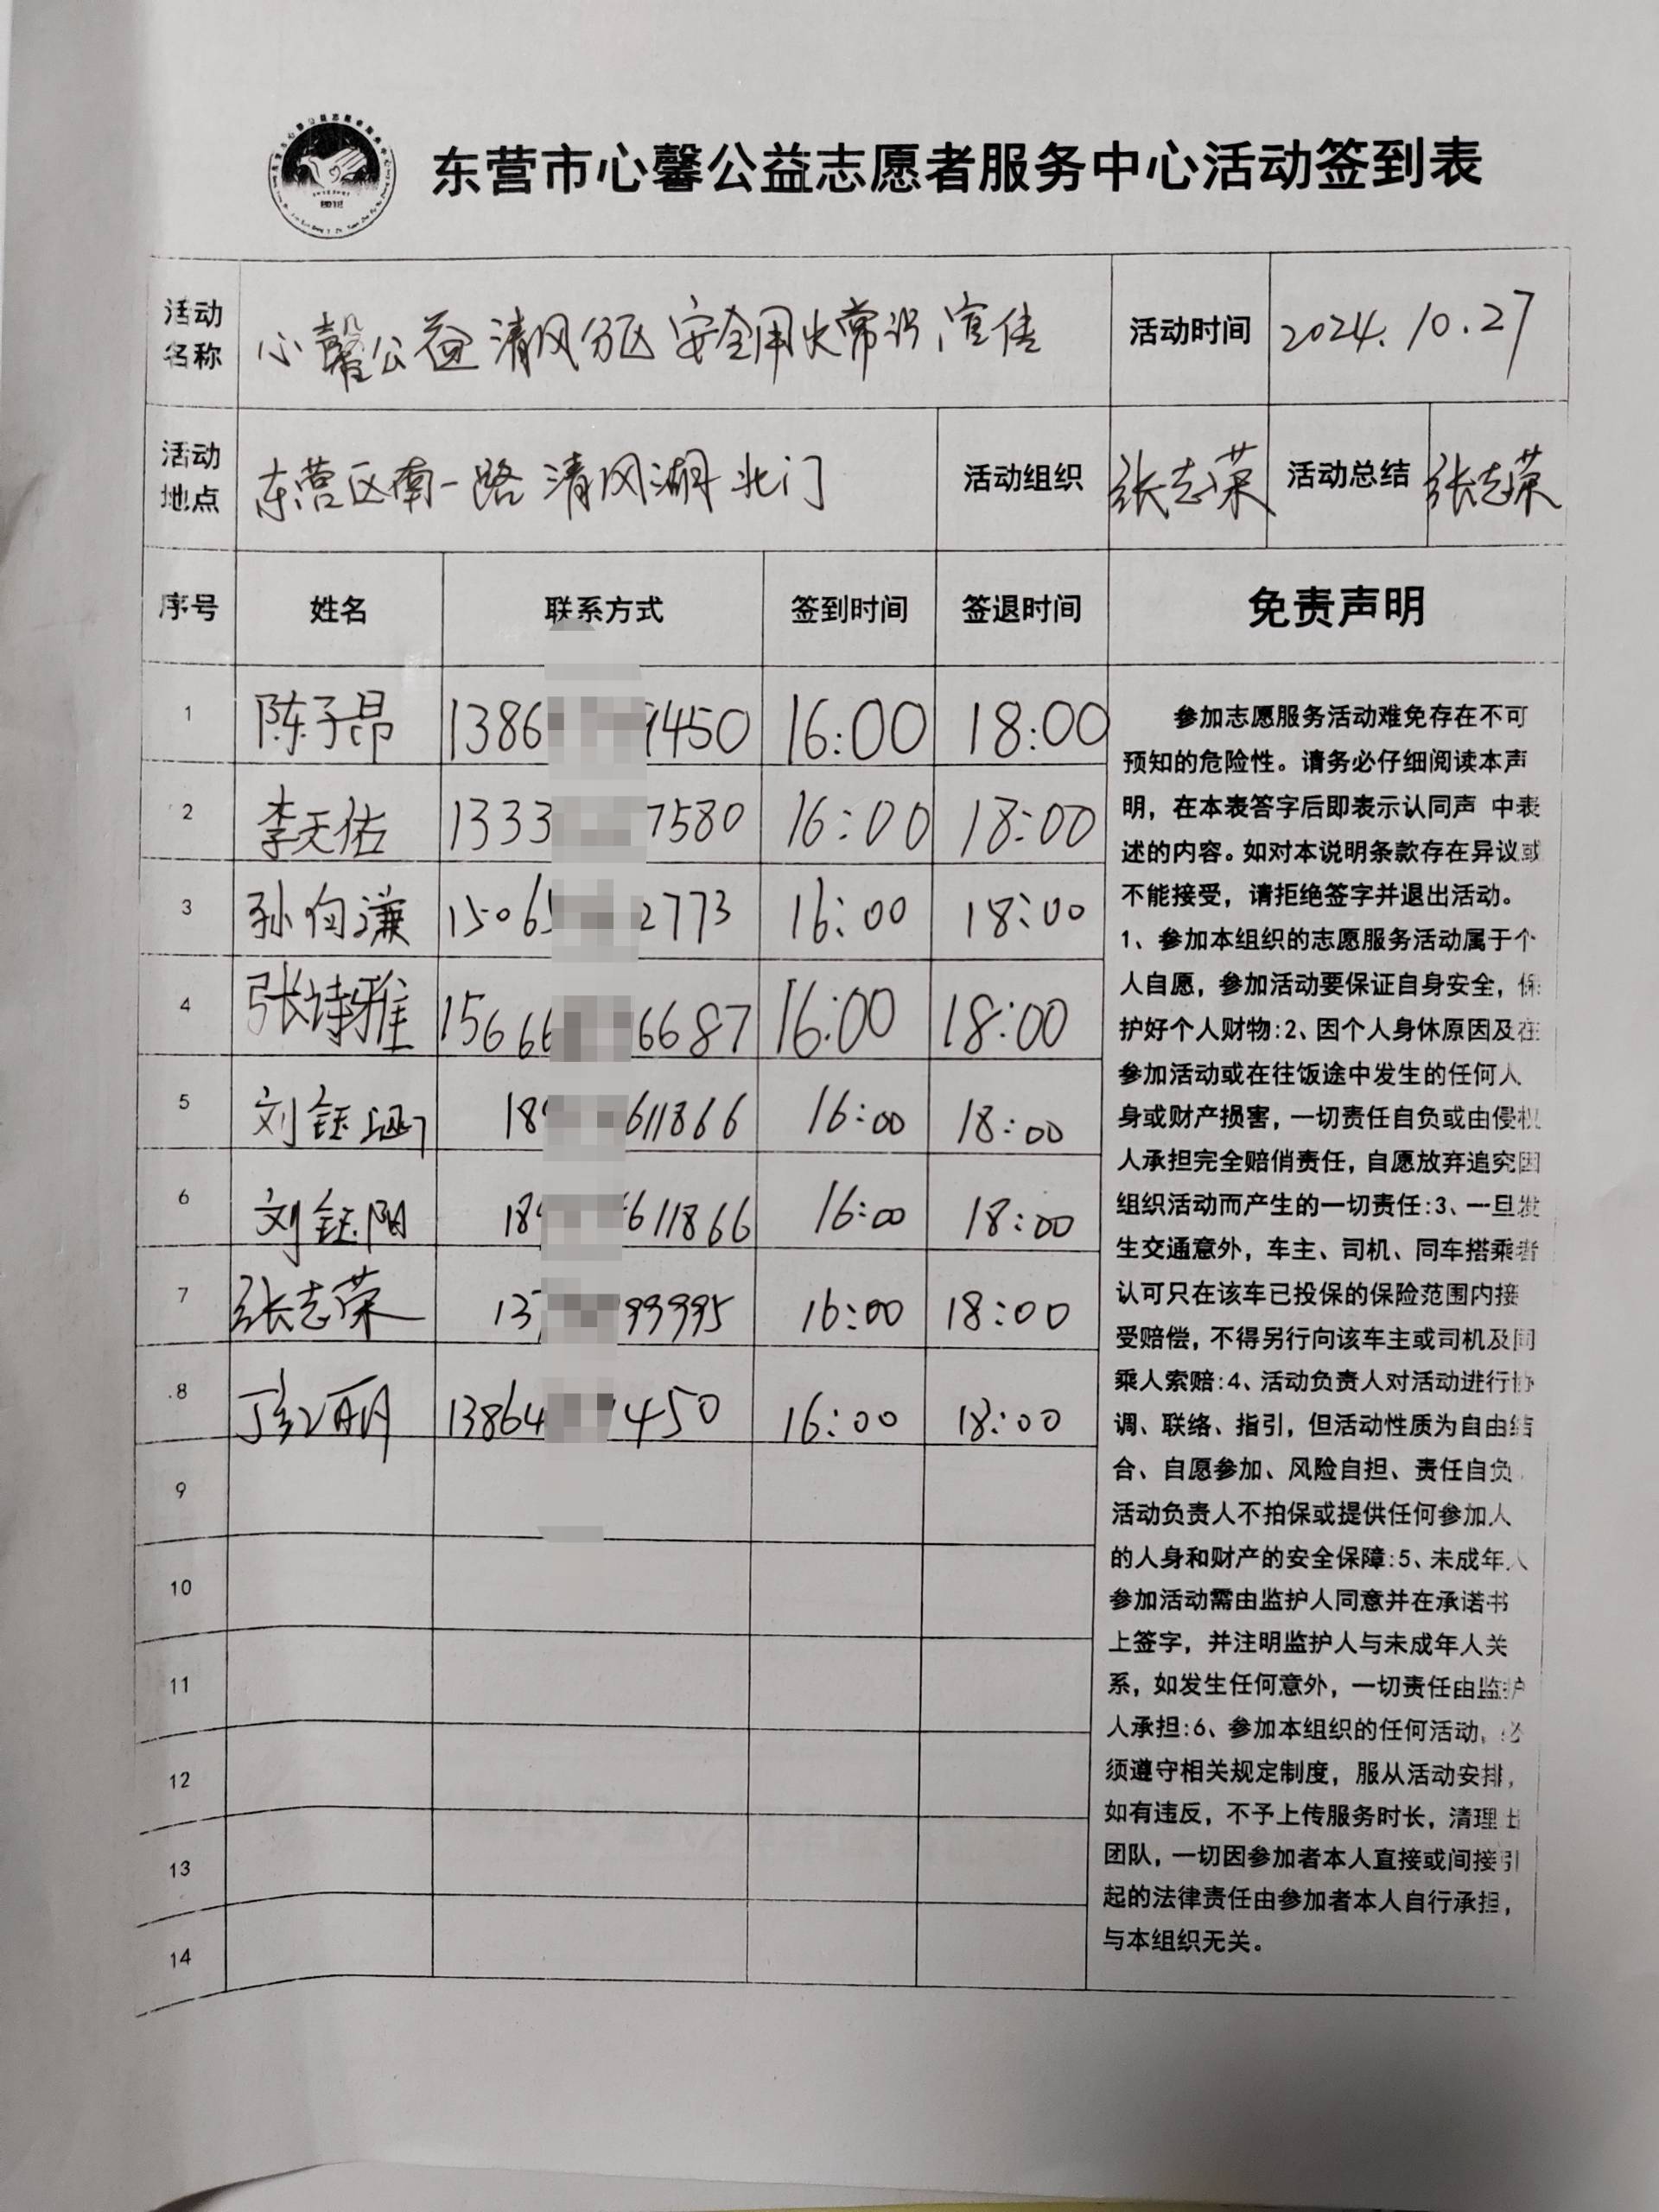 东营市心馨公益志愿者服务中心活动签到表
活动名称 心馨公益清风分区安全用火常识宣传 活动时间 2024.10.27
活动地点 东营区南一路清风湖北门 活动组织 张志荣 活动总结 张志荣
序号 姓名 联系方式 签到时间 签退时间 免责声明
1 陈子昂 1386 9450 16:00 18:00
2 李天佑 1333 7580 16:00 18:00
3 孙向谦 1506 2773 16:00 18:00
4 张诗雅 15666 6687 16:00 18:00
5 刘钰涵 18 611866 16:00 18:00
6 刘钰阳 18 611866 16:00 18:00
7 张志荣 13 99995 16:00 18:00
8 13864 450 16:00 18:00
9
10
11
12
13
14
参加志愿服务活动难免存在不可
预知的危险性。请务必仔细阅读本声
明，在本表答字后即表示认同声 中表
述的内容。如对本说明条款存在异议或
不能接受，请拒绝签字并退出活动。
1、参加本组织的志愿服务活动属于个
人自愿，参加活动要保证自身安全，保
护好个人财物:2、因个人身休原因及在
参加活动或在往饭途中发生的任何人
身或财产损害，一切责任自负或由侵权
人承担完全赔俏责任，自愿放弃追究因
组织活动而产生的一切责任:3、一旦发
生交通意外，车主、司机、同车搭乘者
认可只在该车已投保的保险范围内接
受赔偿，不得另行向该车主或司机及同
乘人索赔:4、活动负责人对活动进行协
调、联络、指引，但活动性质为自由结
合、自愿参加、风险自担、责任自负
活动负责人不拍保或提供任何参加人
的人身和财产的安全保障:5、未成年人
参加活动需由监护人同意并在承诺书
上签字，并注明监护人与未成年人关
系，如发生任何意外，一切责任由监护
人承担:6、参加本组织的任何活动，必
须遵守相关规定制度，服从活动安排，
如有违反，不予上传服务时长，清理出
团队，一切因参加者本人直接或间接引
起的法律责任由参加者本人自行承担，
与本组织无关。